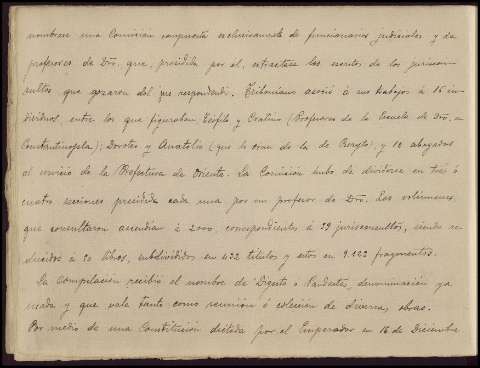 nombrase una Comisión compuesta exclusivamente de funcionarios judiciales y de
profesores de Dro. que, presidida por el, extractara los escritos de los juriscon-
sultos que gozaron del jus respondendi. Triboniano asoció á sus trabajos á 16 in-
dividuos, entre los que figuraban, Teófilo y Cratino (Profesores de la Escuela de Dro. en
Constantinopla,) Doroteo y Anatolio (que lo eran de la de Beryto), y 12 abogados
al servicio de la Prefectura de Oriente. La Comisión hubo de dividirse en tres ó
cuatro secciones presidida cada una por un profesor de Dro. Los volúmenes
que consultaron ascendian á 2000, correspondientes á 39 jurisconsultos, siendo re-
ducidos á 50 libros, subdivididos en 432 titulos y estos en 9.122 fragmentos.
La Compilación recibió el nombre de Digesto ó Pandectas, denominación ya
usada y que vale tanto como reunión ó colección de diversas obras.
Por medio de una Constitución dictada por el Emperador en 16 de Diciembre